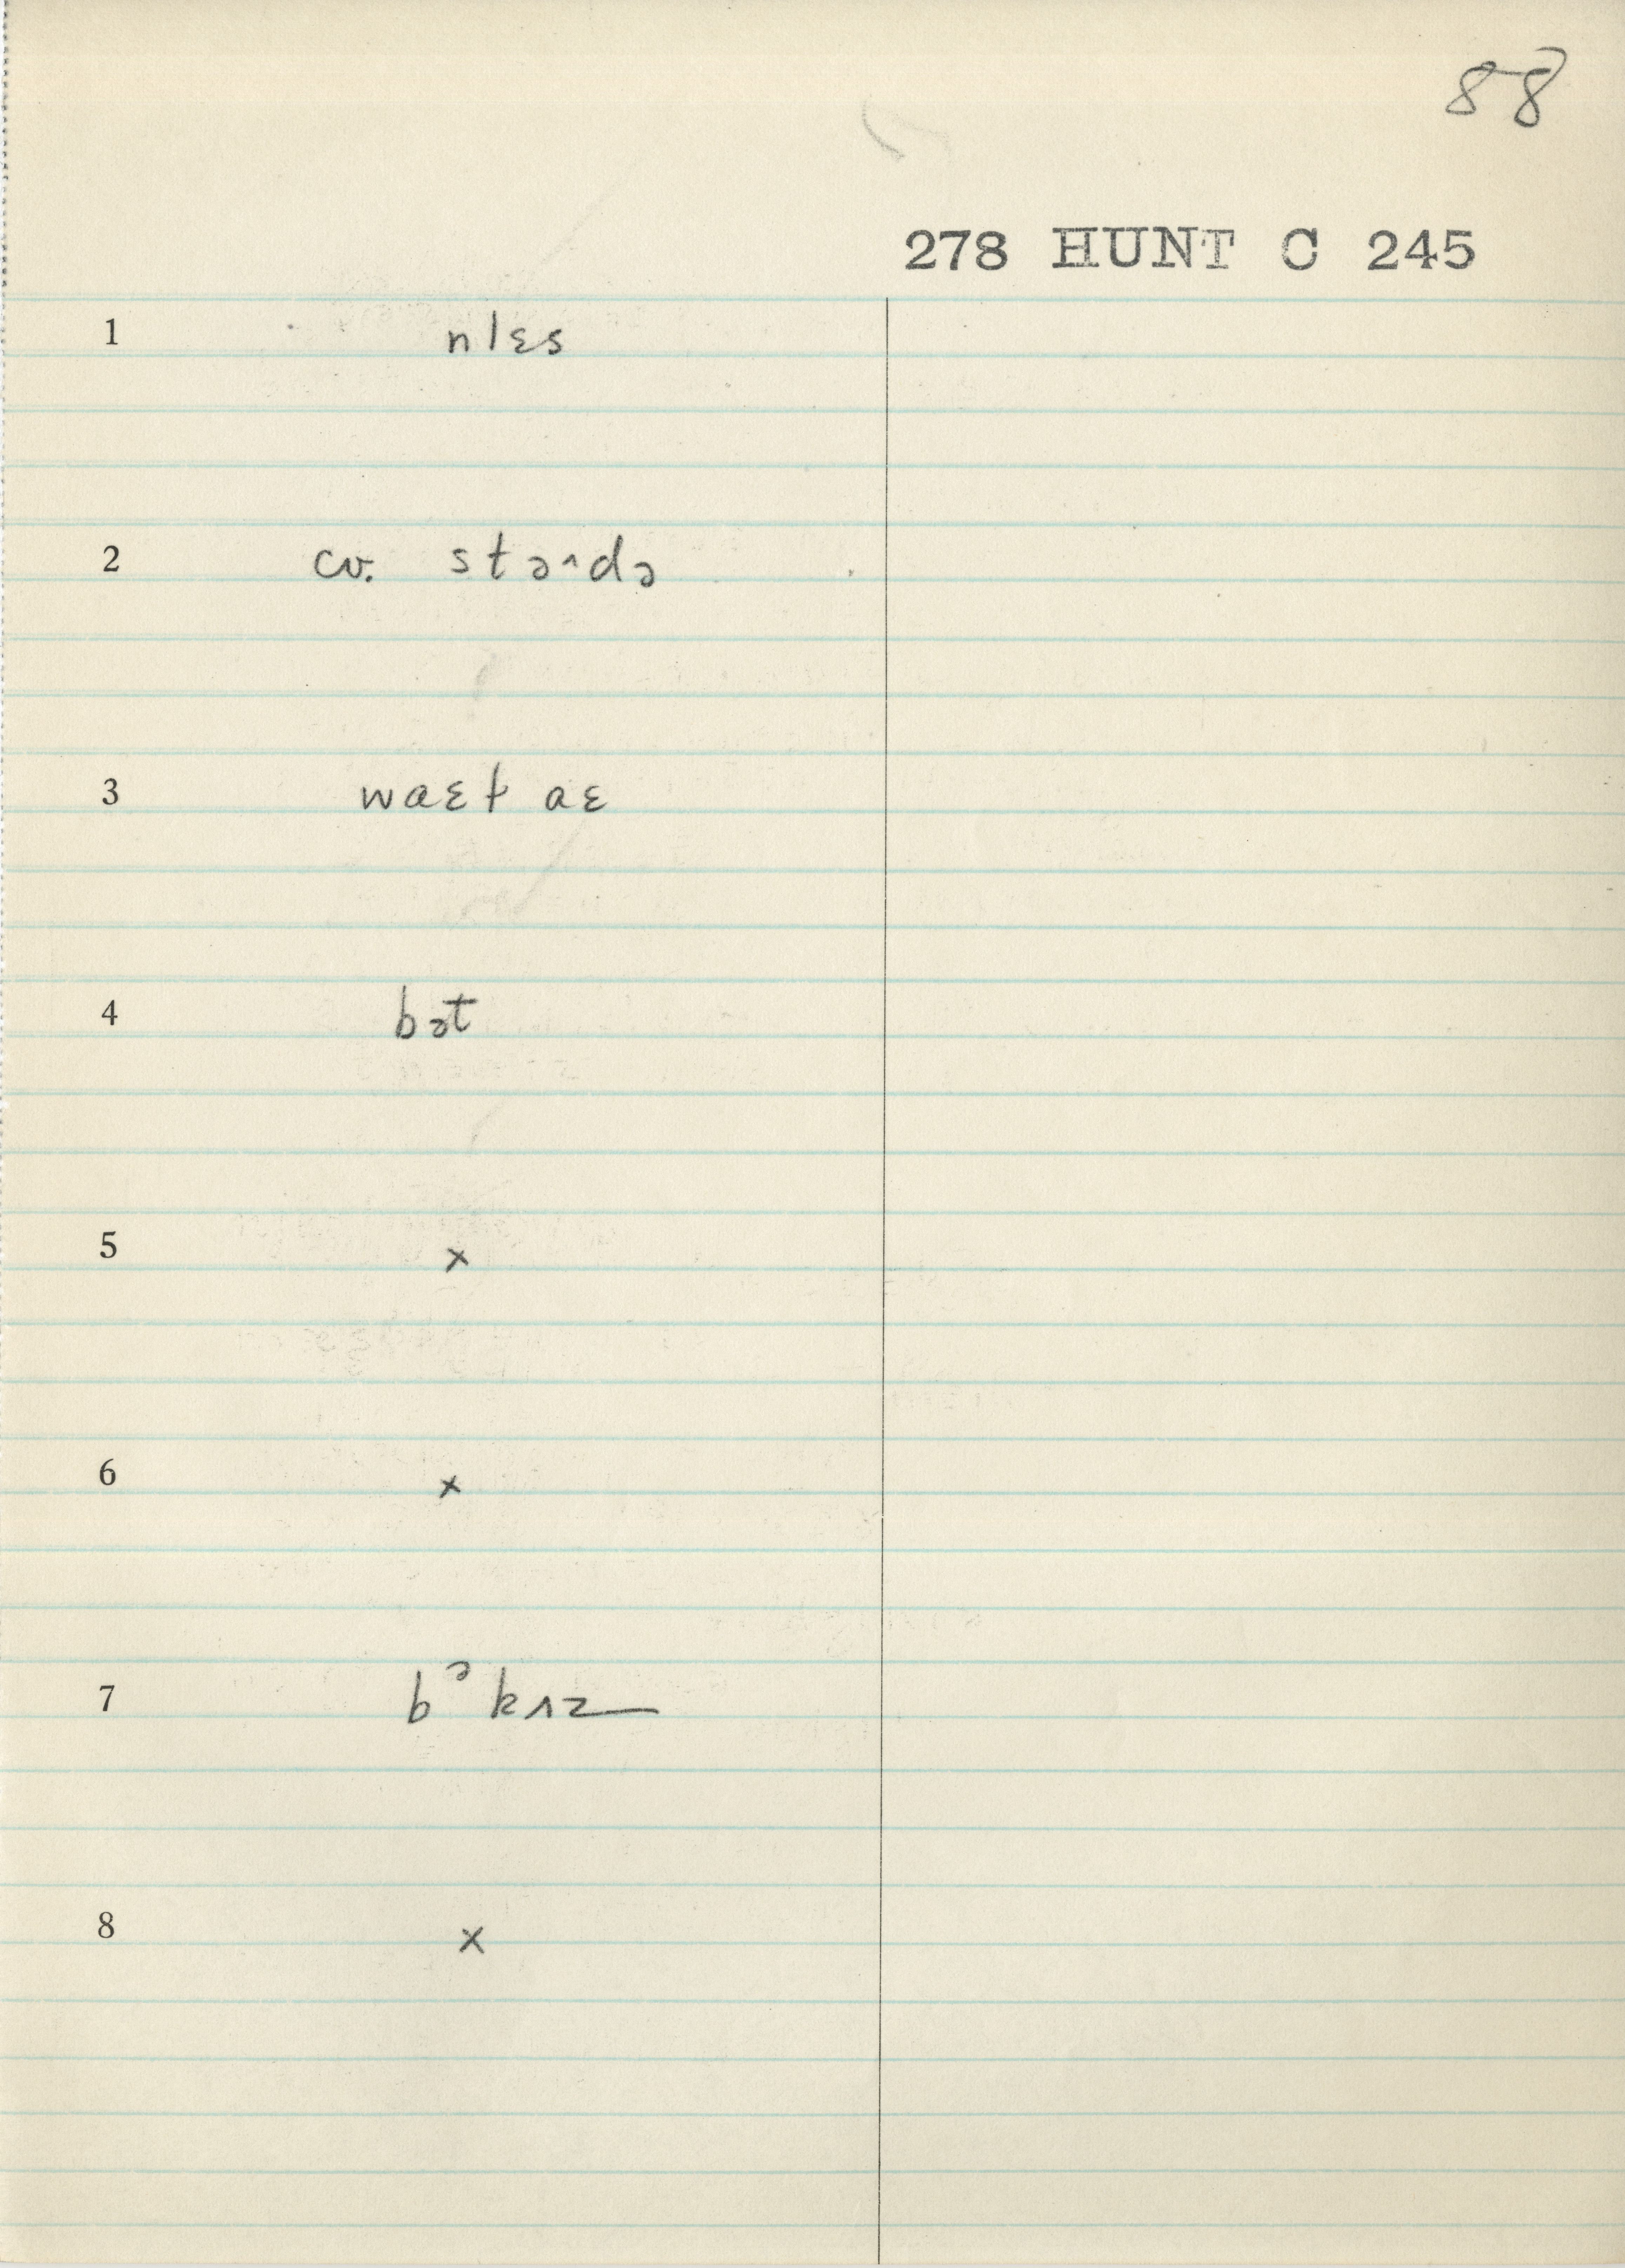 88
278 HUNT C 245
1 nlɛs
2 cv. stɔ^dɔ
3 waɛt aɛ
4 bɔt
5 x
6 x
7 bᵓkɪz
8 x